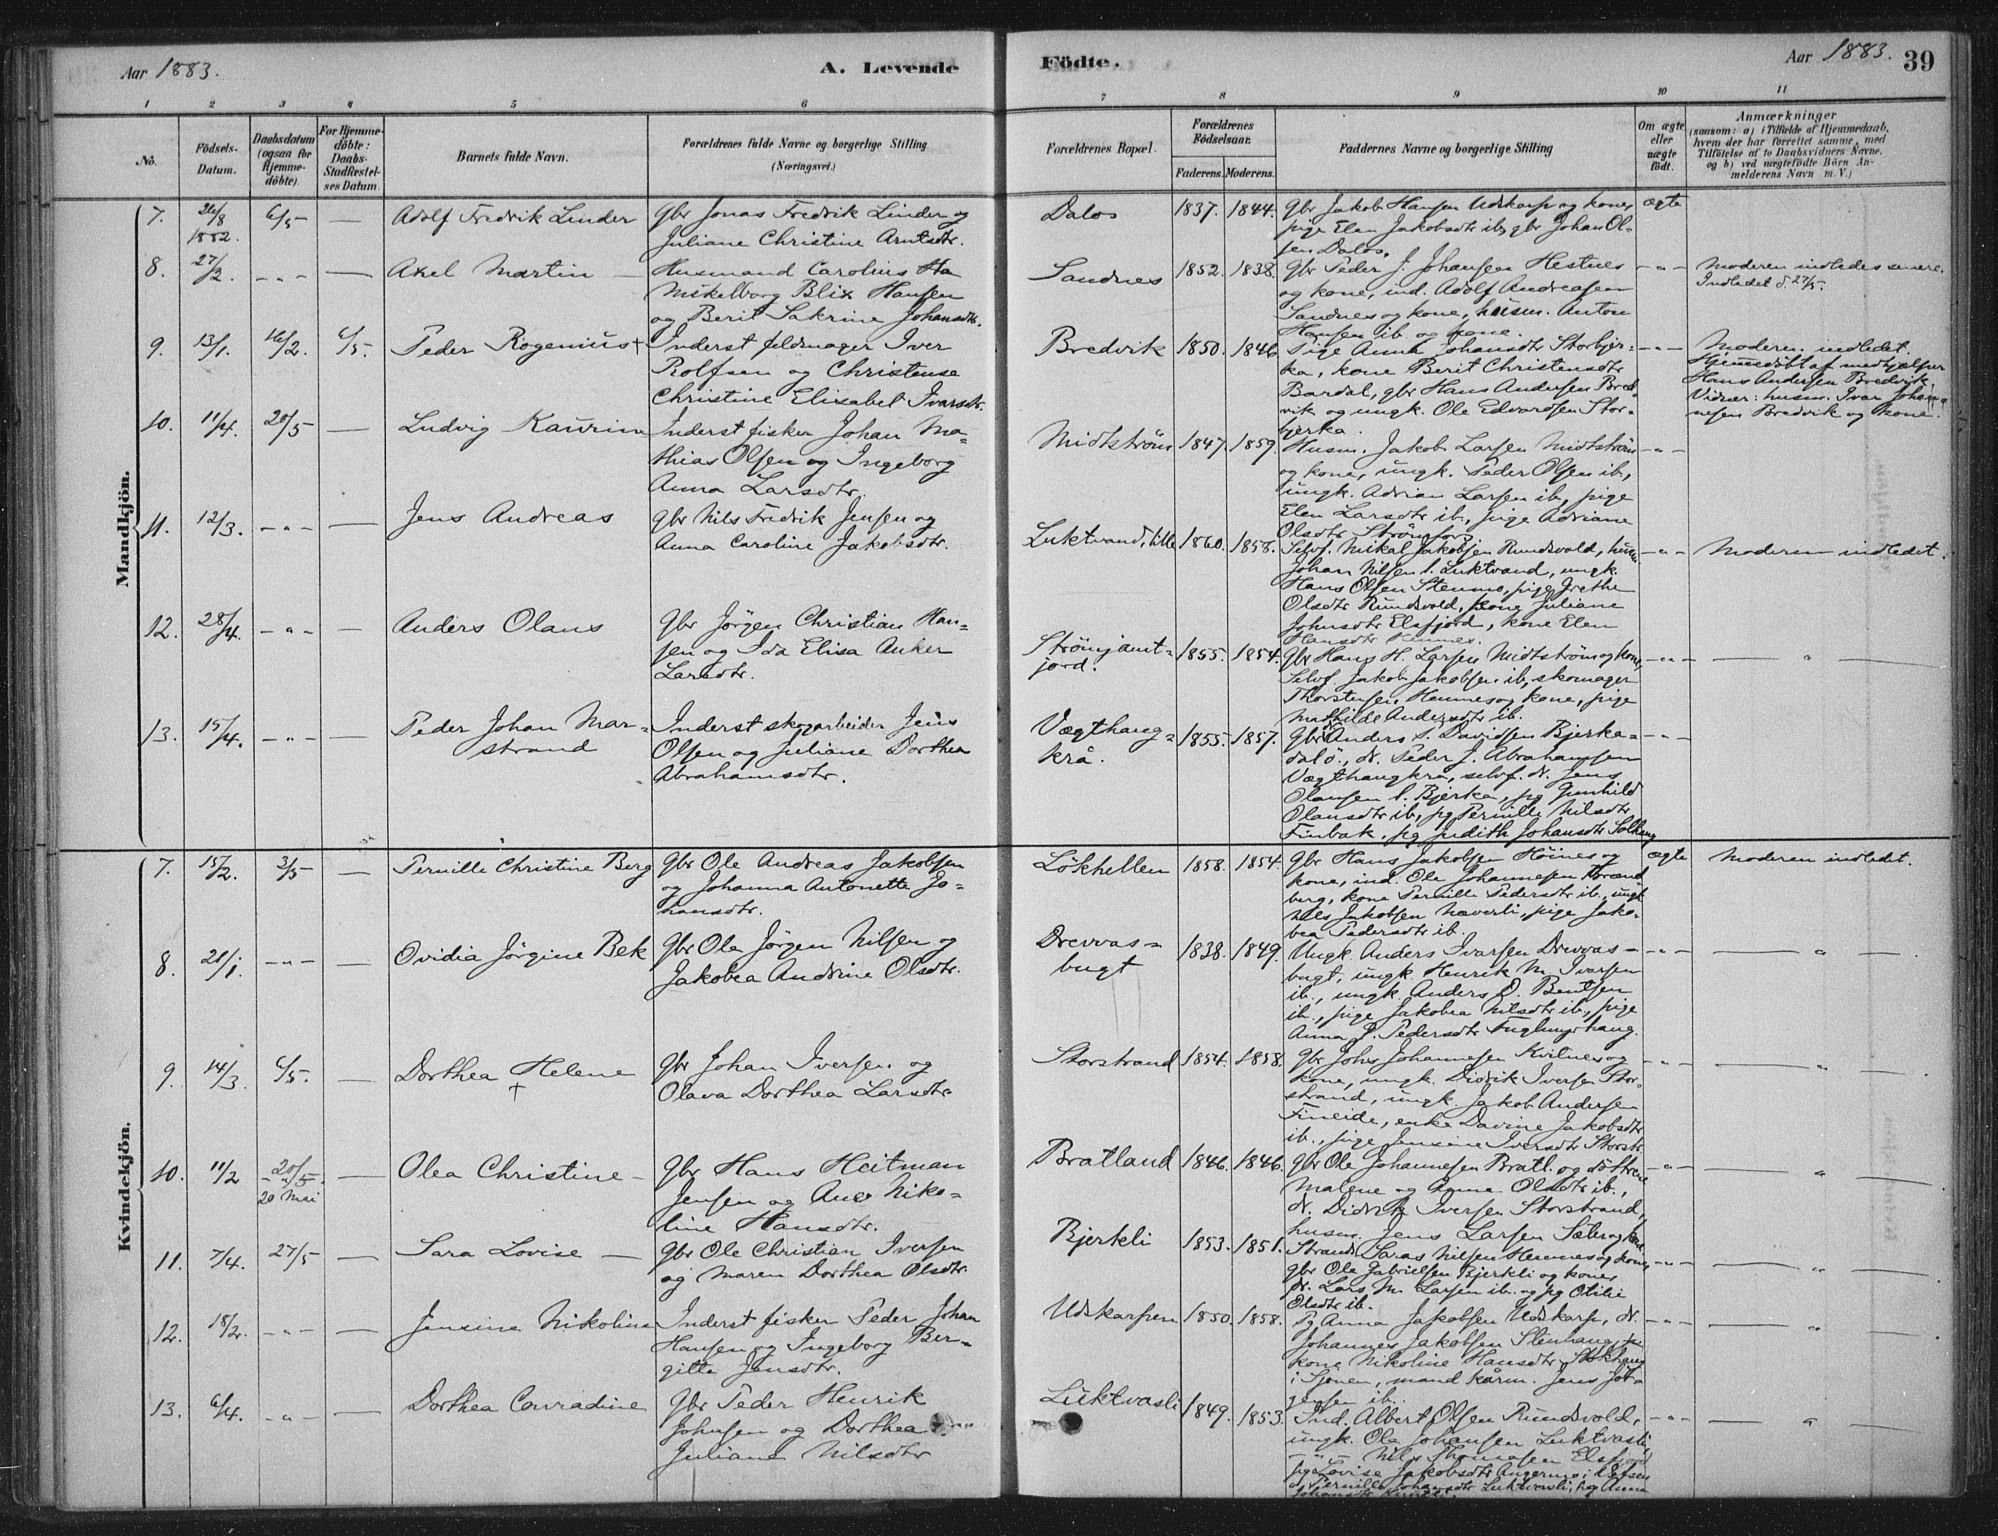 Aar 1883.
A. Levende
Födte.
Aar 1883.
39
1 2 3 4 5 6 7 8 9 10 11
No.
Födsels-
Datum.
Daabsdatum
(ogsaa for
Hjemme-
döbte).
For Hjemme-
döbte:
Daabs-
Stadfæstel-
ses Datum.
Barnets fulde Navn.
Forældrenes fulde Navne og borgerlige Stilling
(Næringsvei.)
Forældrenes Bopæl.
Forældrenes
Födselsaar.
Faderens. Moderens.
Faddernes Navne og borgerlige Stilling
Om ægte
eller
uægte
födt.
Anmærkninger
(saasom: a) i Tilfælde af Hjemmedaab,
hvem der har forrettet samme, med
Tilföielse af to Daabsvidners Navne,
og b) ved uægtefödte Börn An-
melderens Navn m. V.)
Mandkjön.
7. 26/8 1882. 6/5 — Adolf Fredrik Linder
Gbr Jonas Fredrik Linder og
Juliane Christine Arntsdtr.
Dalos 1837. 1844.
Gbr Jakob Hansen Udskarp og kone,
pige Elen Jakobsdtr ib, gbr Johan Ol-
sen Dalos.
ægte
8. 27/2. — " — — Axel Martin —
Husmand Carolius Ha
Mikelborg Blix Hansen
og Berit Sakrine Johansdtr.
Sandnes 1852. 1838.
Gbr Peder J. Johansen Hestnes
og kone, ind. Adolf Andreasen
Sandnes og kone, husm. Anton
Hansen ib og kone.
— " —
Moderen indledes senere.
Indledet d. 27/5.
9. 13/1. 16/2. 6/5. Peder Rogenius +
Inderst feldmager Iver
Rolfsen og Christense
Christine Elisabet Ivarsdtr.
Bredvik 1850. 1846
Pige Anna Johansdtr Storbjer-
ka, kone Berit Christensdtr
Bardal, gbr Hans Andersen Bred
vik og ungk. Ole Edvardsen Stor-
bjerka.
— " —
Moderen indledet.
Hjemmedöbt af medhjælper
Hans Andersen Bredvik,
Vidner: husm. Ivar Johan
nesen Bredvik og kone.
10. 11/4. 20/5 — Ludvig Kaurin
Inderst fisker Johan Ma-
thias Olsen og Ingeborg
Anna Larsdtr.
Midtström 1847. 1859.
Husm. Jakob Larsen Midtström
og kone, ungk. Peder Olsen ib,
ungk. Adrian Larsen ib, pige
Elen Larsdtr ib, pige Adriane
Olsdtr Strömfors
— " —
11. 12/3. — " — — Jens Andreas
Gbr Nils Fredrik Jensen og
Anna Caroline Jakobsdtr.
Luktvand, lille 1860. 1858.
Selvf. Mikal Jakobsen Rundvold, husm.
Johan Nilsen l. Luktvand, ungk.
Hans Olsen Stenmo, pige Grethe
Olsdtr Rundvold, kone Juliane
Johnsdtr Elsfjord, kone Elen
Hansdtr Hennes.
— " —
Moderen indledet.
12. 28/4. — " — — Anders Olaus
Gbr Jörgen Christian Han-
sen og Ida Elisa Anker
Larsdtr.
Strömjamt-
jord. 1855. 1854.
Gbr Hans H. Larsen Midtström og kone,
Selvf. Jakob Jakobsen ib, skomager
Thorstensen Hennes og kone, pige
Mathilde Andersdtr ib.
— " — — " —
13. 15/4. — " — — Peder Johan Mar-
strand
Inderst skogarbeider Jens
Olsen og Juliane Dorthea
Abrahamsdtr.
Vægthaug-
krå. 1855. 1857.
Gbr Anders P. Davidsen Bjerka-
dalö, dr. Peder J. Abrahamsen
Vægthaugkrå, selvf. dr. Jens
Olausen l. Bjerka, pg Gunhild
Olausdtr ib, pg Pernille Nilsdtr
Finbak, pg Judith Johansdtr Solhaug
— " —
Kvindekjön.
7. 15/2. 3/5 — Pernille Christine Berg
Gbr Ole Andreas Jakobsen
og Johanna Antonette Jo-
hansdtr.
Lökhellen 1858. 1854.
Gbr Hans Jakobsen Höines og
kone, ind. Ole Johannesen Brænd
berg, kone Pernille Pedersdtr ib, ungk
Nils Jakobsen Næverli, pige Jako-
bea Pedersdtr ib.
ægte
Moderen indledet.
8. 21/1. — " — — Ovidia Jörgine Bek
Gbr Ole Jörgen Nilsen og
Jakobea Andrine Olsdtr.
Drevvas-
bugt 1838. 1849.
Ungk. Anders Ivarsen Drevvas-
bugt, ungk. Henrik M. Ivarsen
ib., ungk. Anders D. Bentsen
ib., pige Jakobea Nilsdtr ib, pige
Anna J. Pedersdtr Fuglungshaug.
— " — — " —
9. 14/3. 6/5. — Dorthea Helene
+
Gbr Johan Iversen og
Olava Dorthea Larsdtr.
Storstrand 1854. 1858.
Gbr Johs Johannesen Kvitnes og
kone, ungk. Didrik Iversen Stor-
strand, ungk. Jakob Andersen
Fineide, enke Davine Jakobsdtr
ib., pige Jensine Iversdtr Storstr.
— " — — " —
10. 11/2 20/5 — Olea Christine —
20 Mai
Gbr Hans Heitman
Jensen og Ane Niko-
line Hansdtr.
Bratland 1846. 1846.
Gbr Ole Johannesen Bratl. og
Malene og Anne Olsdtr ib,
dr. Didrik Iversen Storstrand,
husm. Jens Larsen Sæter og kone
— " — — " —
11. 7/4. 27/5 — Sara Lovise —
Gbr Ole Christian Iversen
og Maren Dorthea Olsdtr.
Bjerkli 1853. 1851.
Lars Nilsen Hennes og kone,
gbr Ole Gabrielsen Bjerkli og kone,
dr. Lars M. Larsen ib. og pg Otilie
Olsdtr ib.
— " — — " —
12. 18/2. — " — — Jensine Nikoline
Inderst fisker Peder Johan
Hansen og Ingeborg Ber-
gitte Jensdtr.
Udskarpen 1850. 1858.
Pg Anna Jakobsen Udskarp, dr.
Johannes Jakobsen Stenhaug,
kone Nikoline Hansdtr
i Sjonen, mand kårm. Jens Jör-
gensen ib.
— " — — " —
13. 6/4. — " — — Dorthea Conradine
Gbr Peder Henrik
Johnsen og Dorthea
Juliane Nilsdtr
Luktvasli 1849. 1853.
Ind. Albert Olsen Rundvold,
ungk. Ole Johansen Luktvasli,
— " — Nils Thomesen Elsfjord
pige Lovise Jakobsdtr
og Pernille Johansdtr Luktvasli, pg Anna
— " — — " —